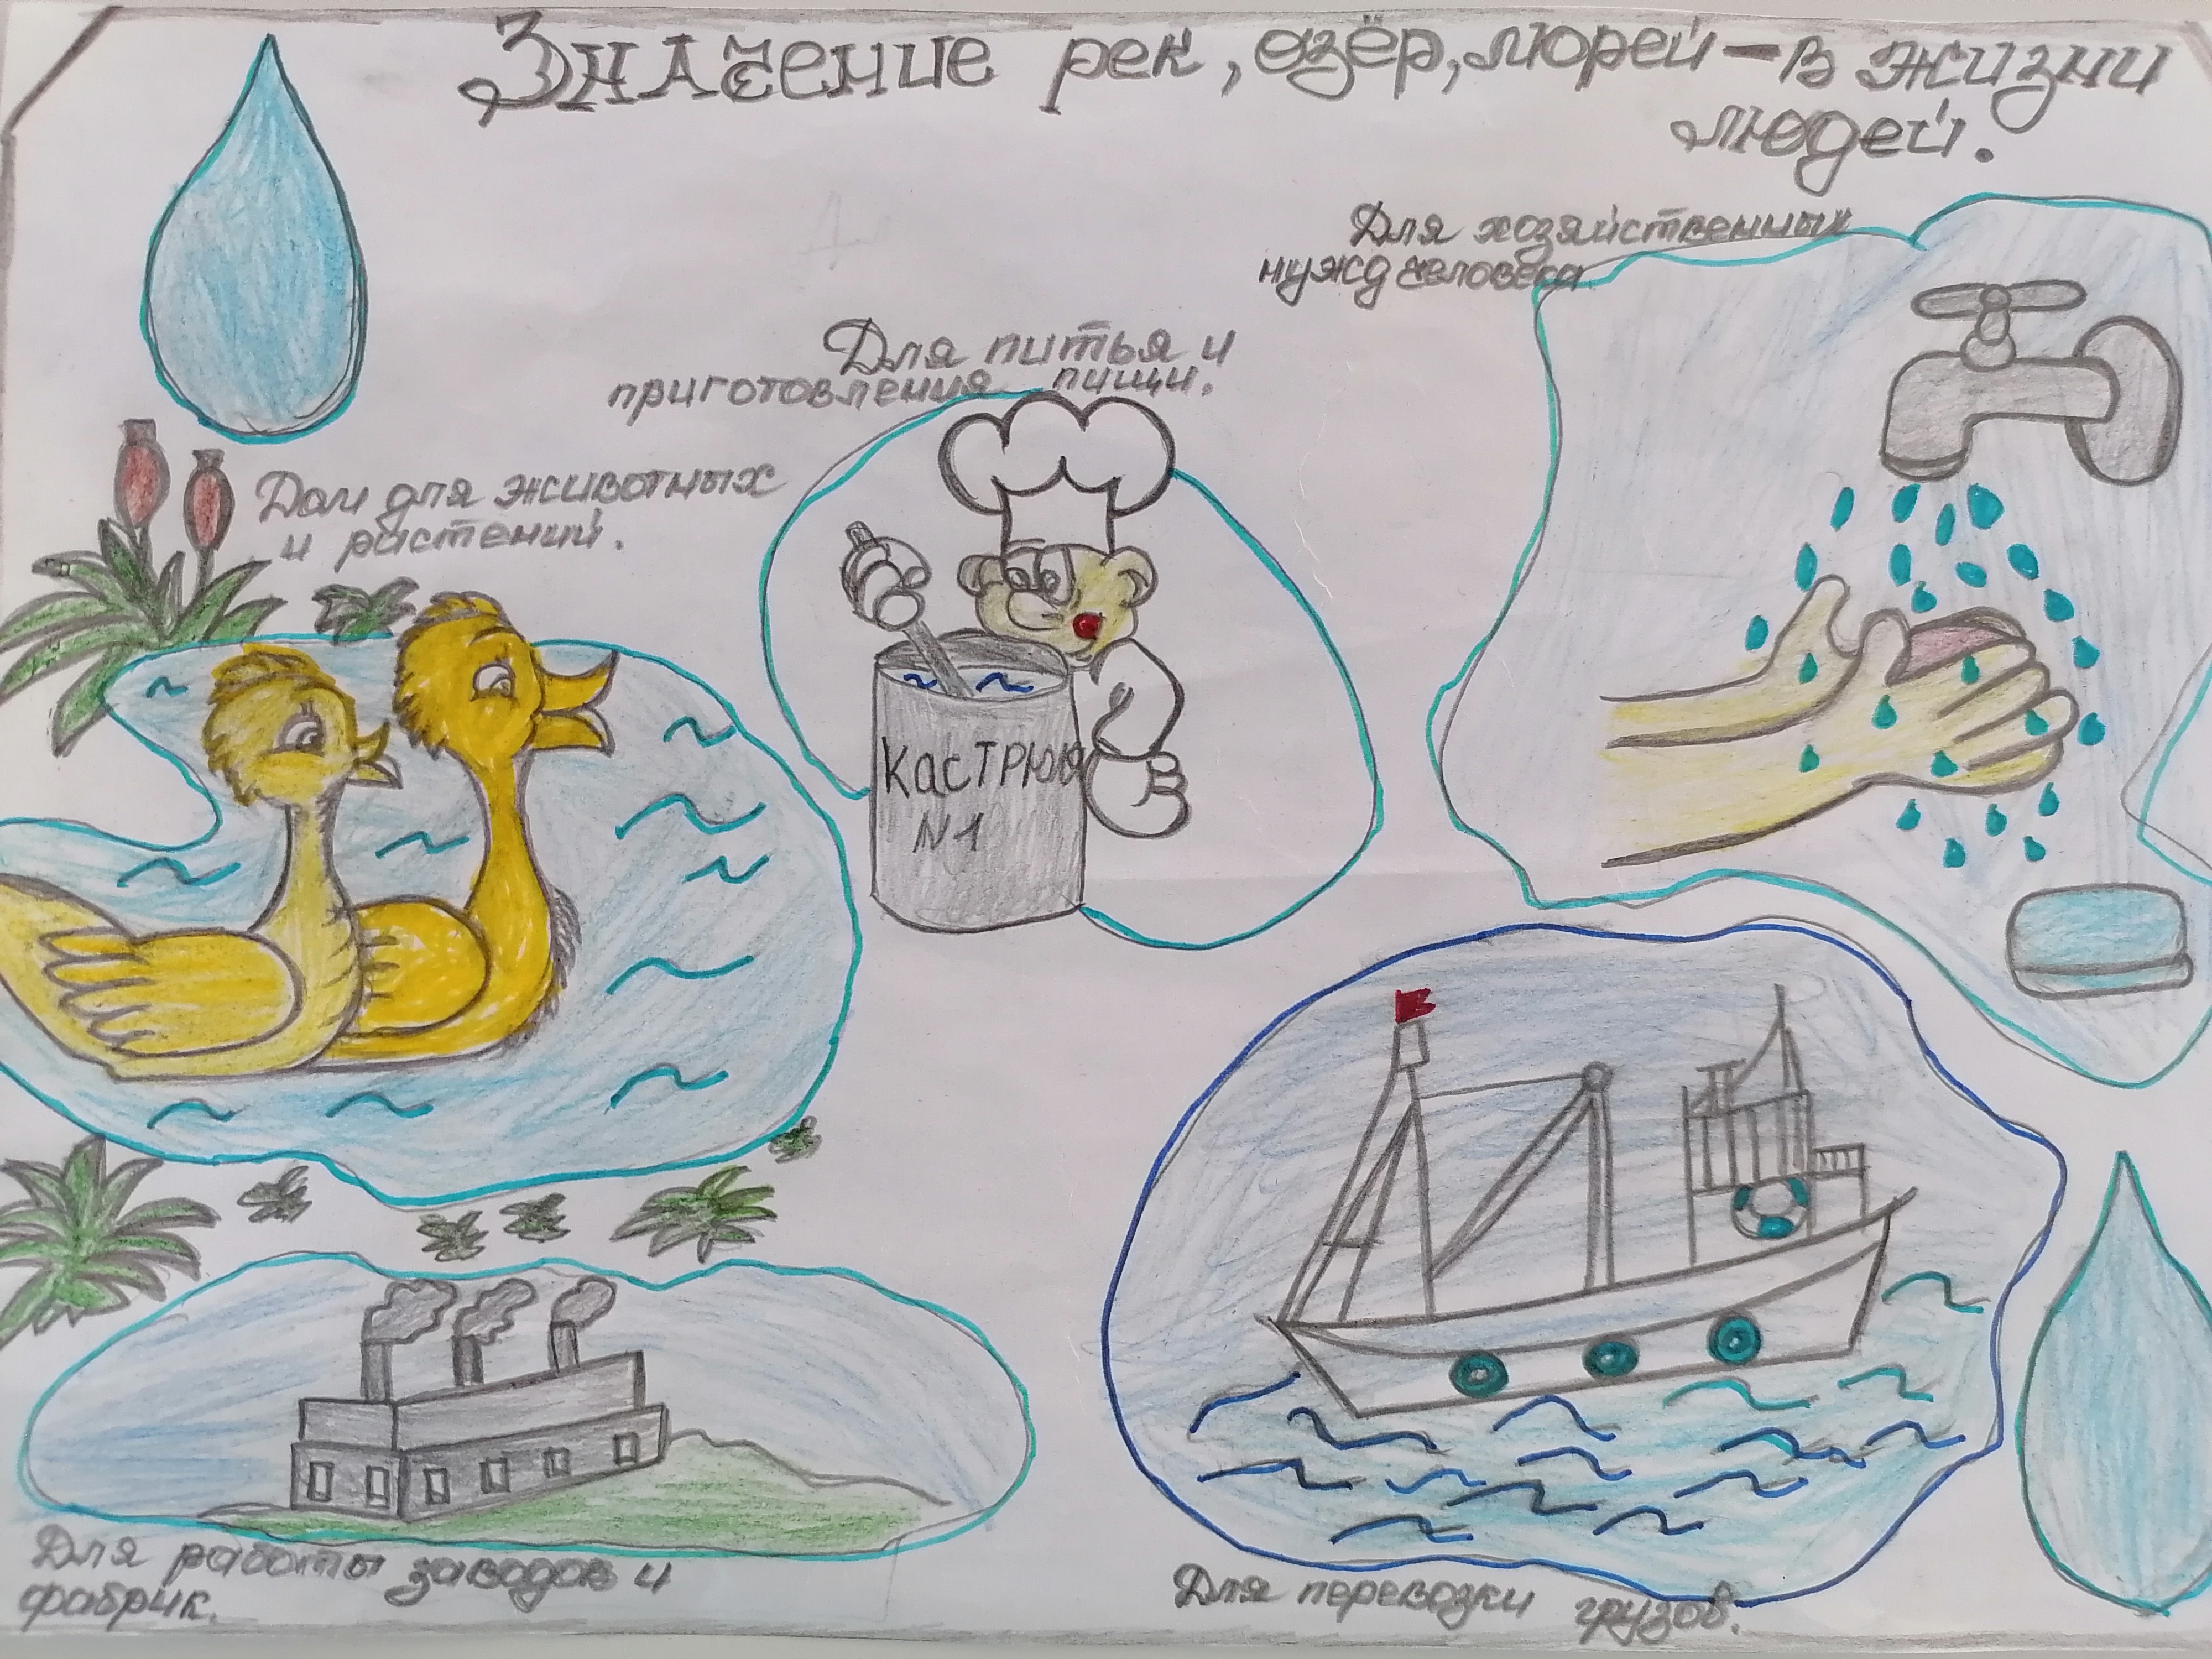 Значение рек, озёр, морей – в жизни
людей.
Для хозяйственных
нужд человека
Для питья и
приготовления пищи.
Дом для животных
и растений.
Кастрюля
N1
Для работы заводов и
фабрик.
Для перевозки грузов.